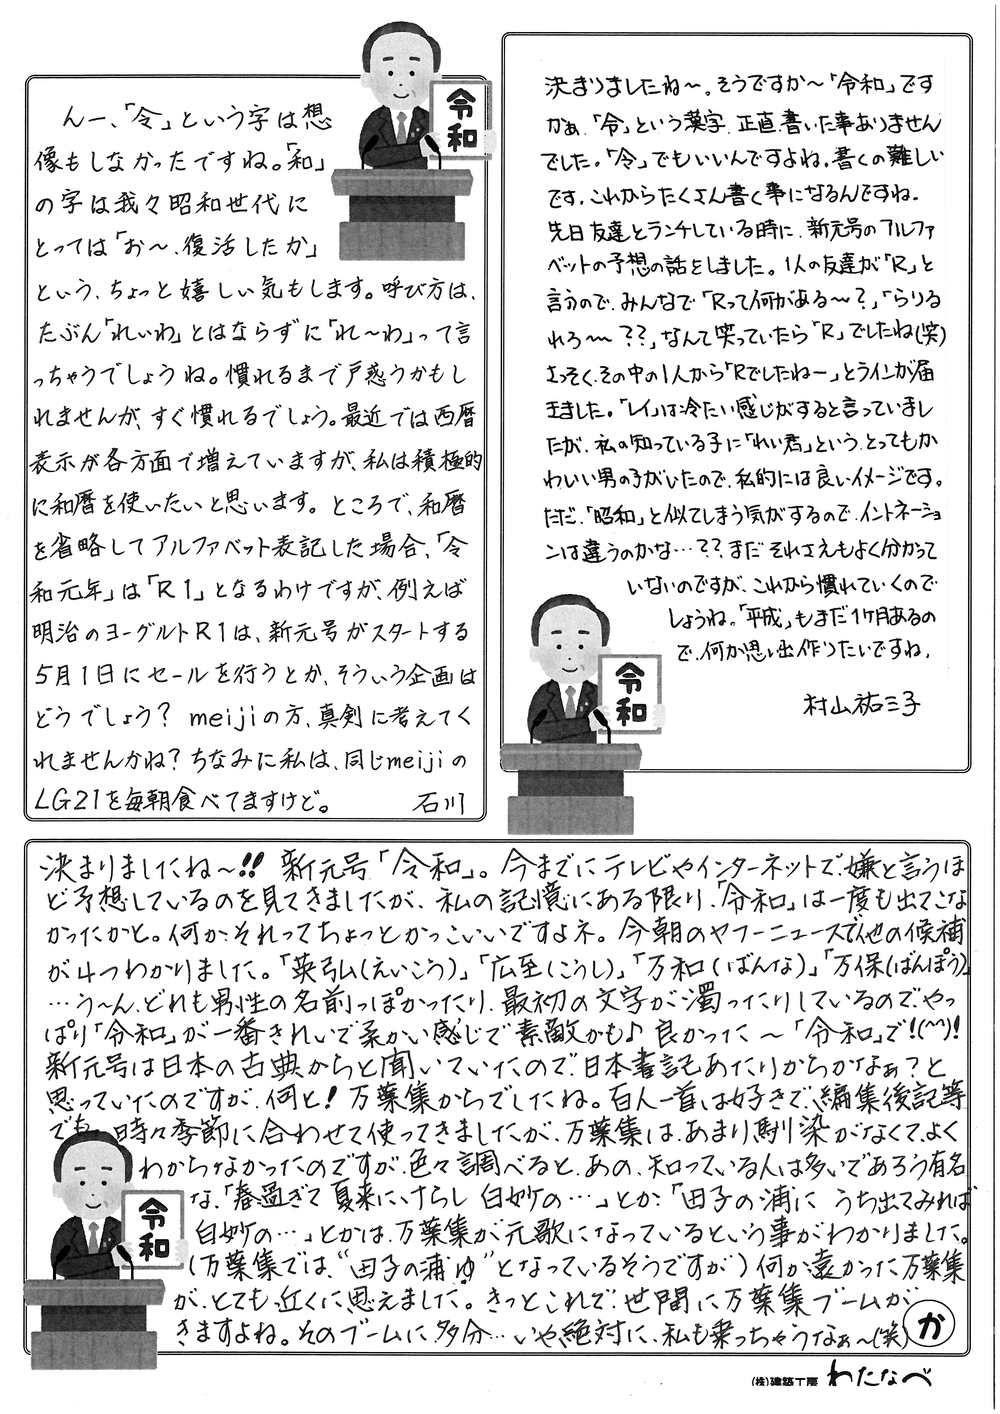 んー、「令」という字は想
像もしなかったですね。「和」
の字は我々昭和世代に
とっては「お～、復活したか」
という、ちょっと嬉しい気もします。呼び方は、
たぶん「れいわ」とはならずに「れ～わ」って言
っちゃうでしょうね。慣れるまで戸惑うかもし
れませんが、すぐ慣れるでしょう。最近では西暦
表示が各方面で増えていますが、私は積極的
に和暦を使いたいと思います。ところで、和暦
を省略してアルファベット表記した場合、「令
和元年」は「R1」となるわけですが、例えば
明治のヨーグルトR1は、新元号がスタートする
5月1日にセールを行うとか、そういう企画は
どうでしょう? meijiの方、真剣に考えてく
れませんかね?ちなみに私は、同じmeijiの
LG21を毎朝食べてますけど。 石川
令
和
決まりましたね～。そうですか～「令和」です
かぁ、「令」という漢字、正直、書いた事ありません
でした。「令」でもいいんですよね。書くの難しい
です。これからたくさん書く事になるんですね。
先日友達とランチしている時に、新元号のアルファ
ベットの予想の話をしました。1人の友達が「R」と
言うので、みんなで「Rって何がある～?」「らりる
れろ～??」なんて笑っていたら「R」でしたね(笑)
さっそく、その中の1人から「Rでしたねー」とラインが届
きました。「レイ」は冷たい感じがすると言っていまし
たが、私の知っている子に「れい君」という、とってもか
わいい男の子がいたので、私的には良いイメージです。
ただ、「昭和」と似てしまう気がするので、イントネーショ
ンは違うのかな…??まだそれさえもよく分かって
いないのですが、これから慣れていくので
しょうね。「平成」もまだ1ヶ月あるの
で、何か思い出作りたいですね。
村山祐三子
令
和
決まりましたね～!! 新元号「令和」。今までにテレビやインターネットで、嫌と言うほ
ど予想しているのを見てきましたが、私の記憶にある限り、「令和」は一度も出てこな
かったかと。何か、それってちょっとかっこいいですよネ。今朝のヤフーニュースで他の候補
が4つわかりました。「英弘(えいこう)」「広至(こうし)」「万和(ばんな)」「万保(ばんぽう)」
…う～ん、どれも男性の名前っぽかったり、最初の文字が濁ったりしているので、やっ
ぱり「令和」が一番きれいで柔かい感じで素敵かも♪良かった～「令和」で!(^^)!
新元号は日本の古典からと聞いていたので、日本書記あたりからかなぁ?と
思っていたのですが、何と!万葉集からでしたね。百人一首は好きで、編集後記等
でも、時々季節に合わせて使ってきましたが、万葉集は、あまり馴染がなくて、よく
わからなかったのですが、色々調べると、あの、知っている人は多いであろう有名
な、「春過ぎて夏来にけらし 白妙の…」とか、「田子の浦に うち出てみれば
白妙の…」とかは、万葉集が元歌になっているという事がわかりました。
(万葉集では、“田子の浦ゆ”となっているそうですが)何か遠かった万葉集
が、とても近くに思えました。きっとこれで、世間に万葉集ブームが
きますよね。そのブームに多分…いや、絶対に、私も乗っちゃうなぁ～(笑) か
令
和
(株)建築工房 わたなべ